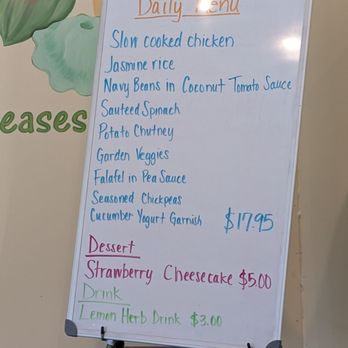 Daily Menu
Slow cooked chicken
Jasmine rice
Navy Beans in Coconut Tomato Sauce
Sauteed Spinach
Potato Chutney
Garden Veggies
Falafel in Pea Sauce
Seasoned Chickpeas
Cucumber Yogurt Garnish $17.95
Dessert
Strawberry Cheesecake $5.00
Drink
Lemon Herb Drink $3.00
eases